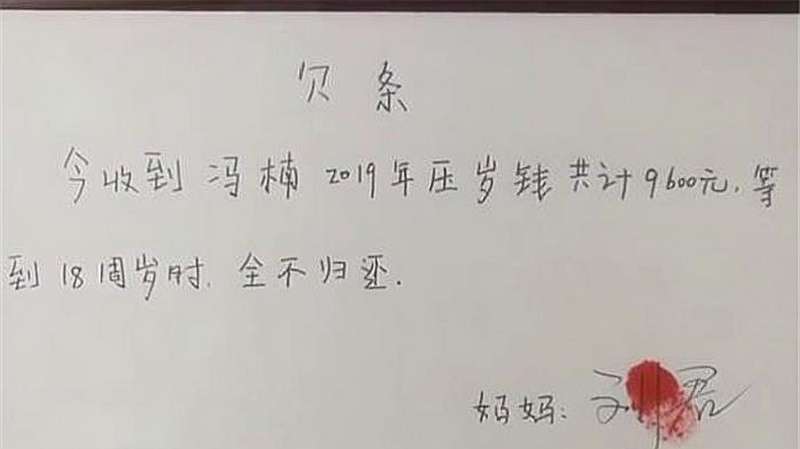 欠条
今收到冯楠2019年压岁钱共计9600元,等
到18周岁时,全不归还.
妈妈:刘君